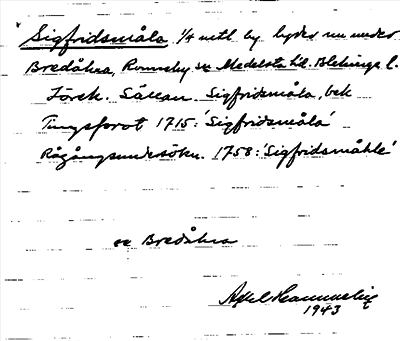 Sigfridsmåla, 1/4 mtl. by lyder nu under
Bredåkra, Ronneby sn Medelsta hd. Blekinge l.
Försk. Sällan. Sigfridsmåla, bek
Tingsprot 1715: 'Sigfridsmåla'
Rågångsundersökn. 1758: 'Sigfridsmåhle'
se Bredåkra
Axel
1943